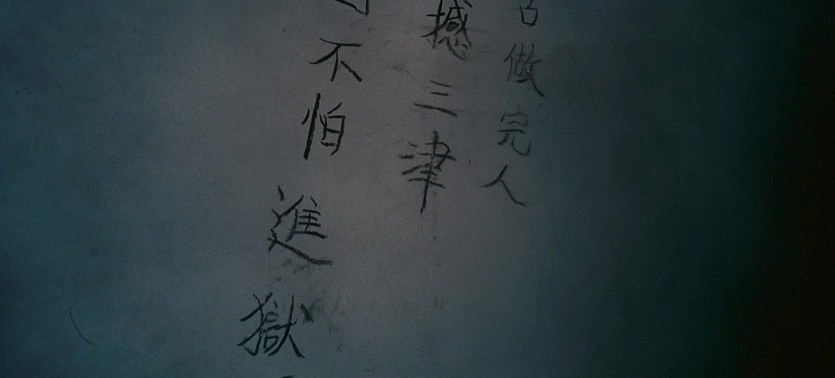 做完人
撼三津
不怕進獄